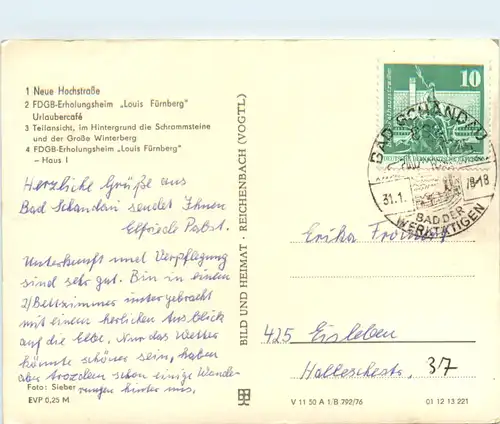 1 Neue Hochstraße
2 FDGB-Erholungsheim „Louis Fürnberg"
Urlaubercafé
3 Teilansicht, im Hintergrund die Schrammsteine
und der Große Winterberg
4 FDGB-Erholungsheim „Louis Fürnberg"
– Haus I
Herzliche Grüße aus
Bad Schandau sendet Ihnen
Elfriede Pabst.
Unterkunft und Verpflegung
sind sehr gut. Bin in einem
2/Bettzimmer untergebracht
mit einem herlichen Ausblick
auf die Elbe. Nur das Wetter
könnte schöner sein, haben
aber trozdem schon einige Wander
Foto: Sieber
rungen hinter uns.
EVP 0,25 M
BILD UND HEIMAT · REICHENBACH (VOGTL)
10
DEUTSCHE DEMOKRATISCHE
BAD SCHANDAU
31.1.
78-18
BAD DER
WERKTÄTIGEN
Erika
425 Eisleben
Halleschestr. 37
V 11 50 A 1/B 792/76
01 12 13 221